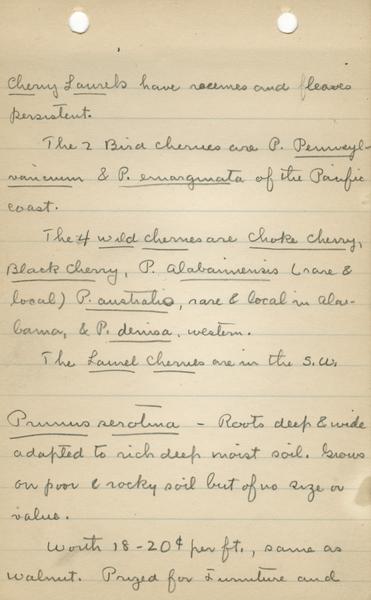 Cherry Laurels have racemes and leaves
persistent.
The 2 Bird cherries are P. Pennsyl-
vanicum & P. emarginata of the Pacific
coast.
The 4 wild cherries are Choke Cherry,
Black Cherry, P. Alabamensis (rare &
local) P. australis, rare & local in Ala-
bama, & P. demisa, western.
The Laurel Cherries are in the S.W.
Prunus serotina - Roots deep & wide
adapted to rich deep moist soil. Grows
on poor & rocky soil but of no size or
value.
Worth 18-20¢ per ft., same as
walnut. Prized for Furniture and